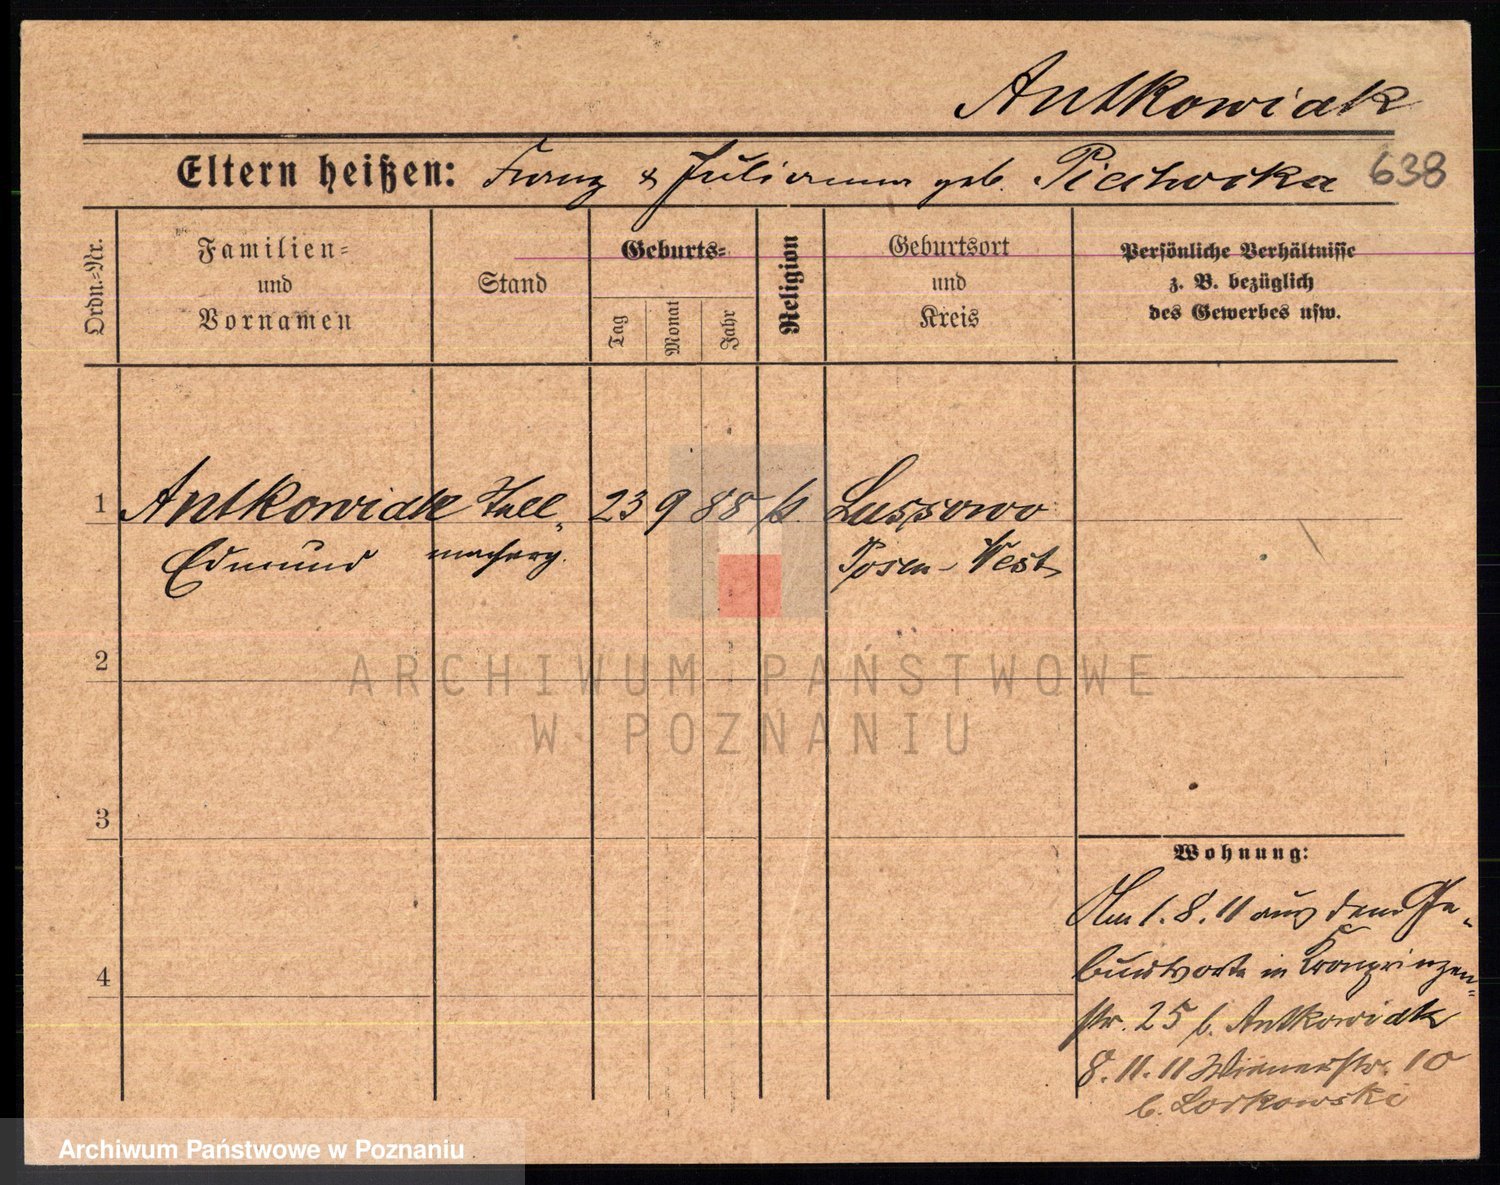 Antkowiak
Eltern heißen: Franz & Julianna geb. Piechocka 638
Ordn.=Nr.
Familien=
und
Vornamen
Stand
Geburts=
Tag
Monat
Jahr
Religion
Geburtsort
und
Kreis
Persönliche Verhältnisse
z. B. bezüglich
des Gewerbes usw.
1 Antkowiak 23 9 88 k. Lussowo
Edmund Posen-West
2
3
4
Wohnung:
Am 1.8.11 aus dem Ge-
burtsorte in Kronprinzen=
str. 25 b. Antkowiak
8.11.11 Wienerstr. 10
b. Lorkowski
ARCHIWUM PAŃSTWOWE
W POZNANIU
Archiwum Państwowe w Poznaniu